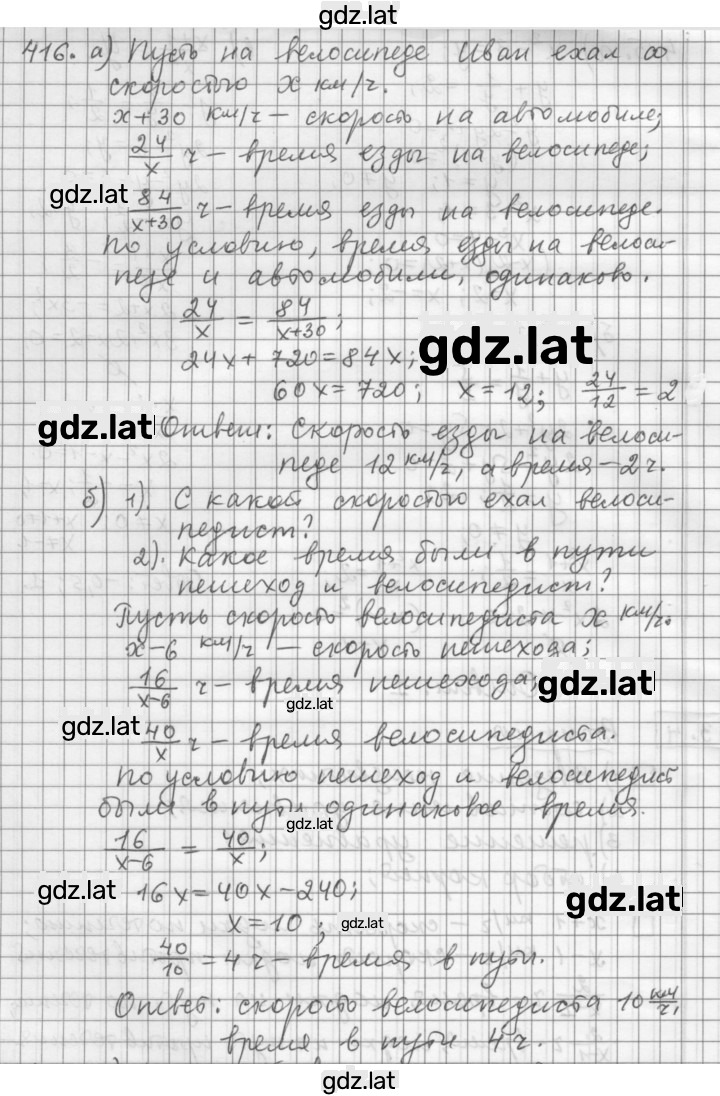 gdz.lat
416. а) Пусть на велосипеде Иван ехал со
скоростью x км/ч.
x+30 км/ч — скорость на автомобиле;
24/x ч — время езды на велосипеде;
gdz.lat
84/x+30 ч — время езды на велосипеде.
По условию, время езды на велоси-
педе и автомобили, одинаково.
24/x = 84/x+30;
24x + 720 = 84x;
gdz.lat
60x = 720; x = 12; 24/12 = 2
gdz.lat
Ответ: Скорость езды на велоси-
педе 12 км/ч, а время — 2 ч.
б) 1). С какой скоростью ехал велоси-
педист?
2). Какое время были в пути
пешеход и велосипедист?
Пусть скорость велосипедиста x км/ч.
x-6 км/ч — скорость пешехода;
16/x-6 ч — время пешехода;
gdz.lat
gdz.lat
gdz.lat
40/x ч — время велосипедиста.
По условию пешеход и велосипедист
были в пути одинаковое время.
gdz.lat
16/x-6 = 40/x;
16x = 40x - 240;
gdz.lat
gdz.lat
x = 10;
gdz.lat
40/10 = 4 ч — время в пути.
Ответ: скорость велосипедиста 10 км/ч,
время в пути 4 ч.
gdz.lat